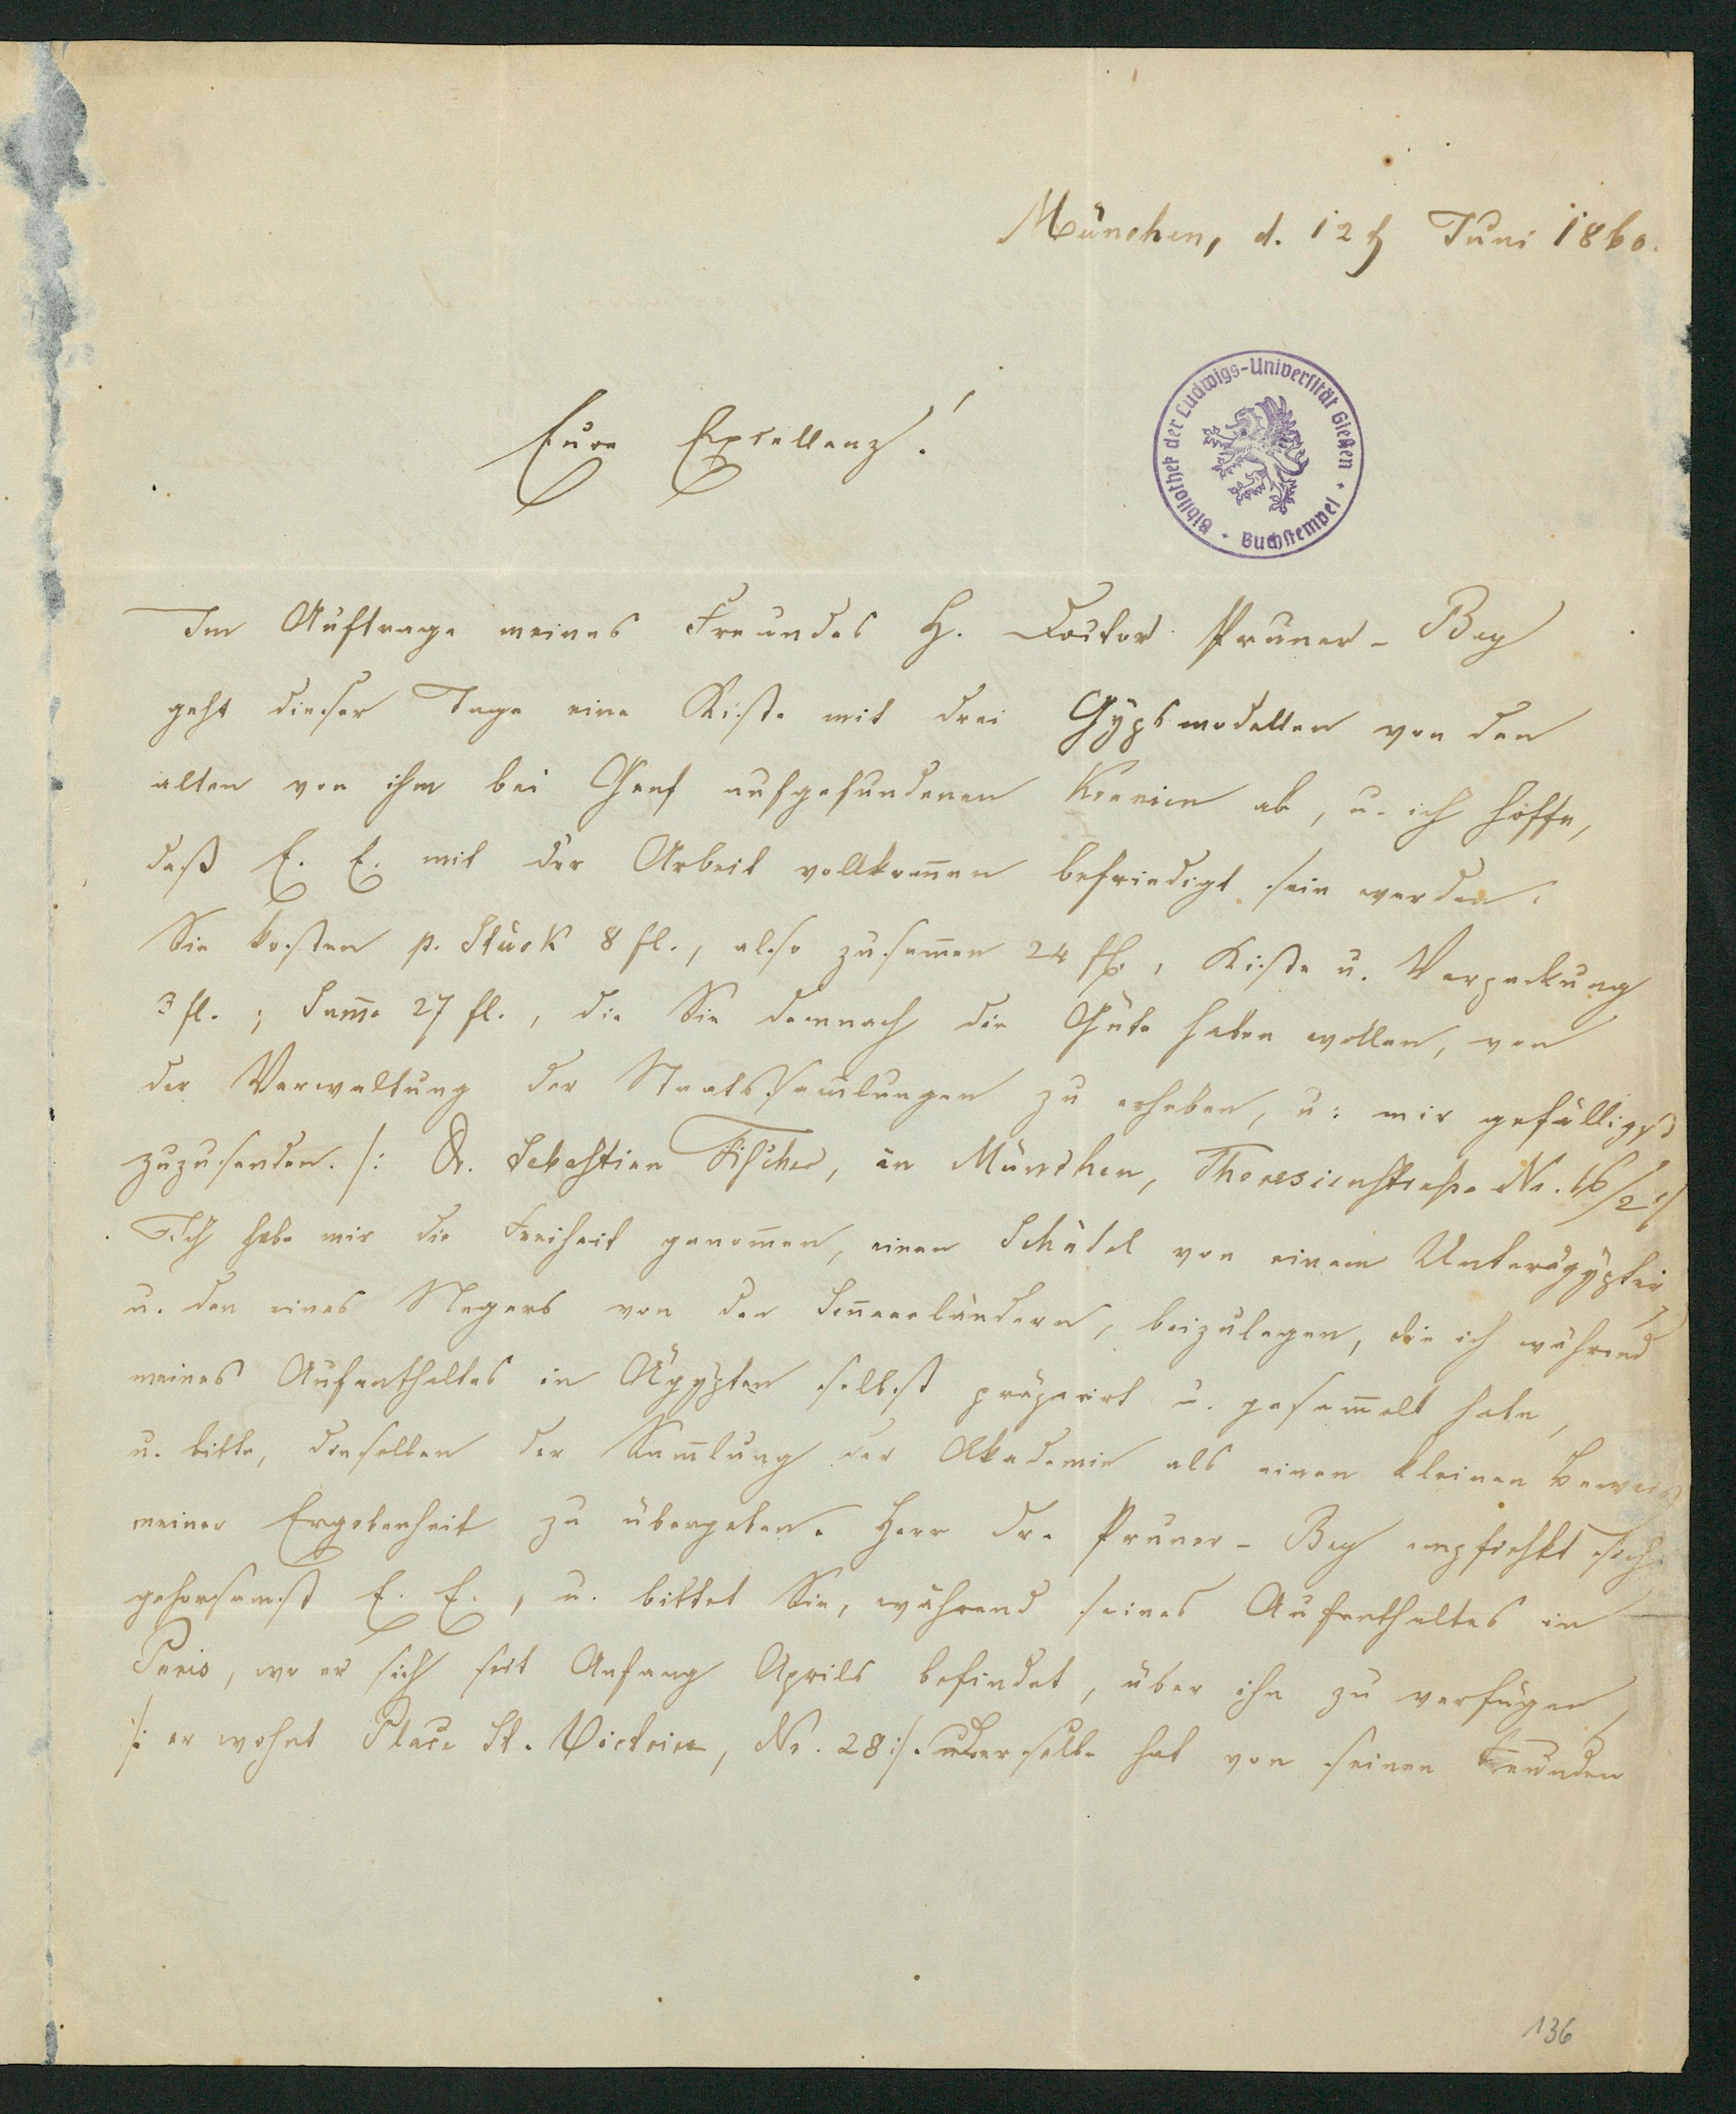 München, d. 12t Juni 1860.
Bibliothek der Ludwigs-Universität Gießen * Buchstempel *
Eure Excellenz!
Im Auftrage meines Freundes H. Doctor Pruner-Bey
geht dieser Tage eine Kiste mit drei Gypsmodellen von den
alten von ihm bei Genf aufgefundenen Kranien ab, u. ich hoffe,
daß E. E. mit der Arbeit vollkom̅en befriedigt sein werden.
Sie kosten p. Stück 8 fl., also zusam̅en 24 fl., Kiste u. Verpackung
3 fl.; Sum̅e 27 fl., die Sie demnach die Güte haben wollen, von
der Verwaltung der Staatssam̅lungen zu erheben, u. mir gefälligst
zuzusenden. /: Dr. Sebastian Fischer, in München, Theresienstraße No. 16/2 :/
Ich habe mir die Freiheit genom̅en, einen Schädel von einem Unterägypter
u. den eines Negers von den Sen̅aarländern, beizulegen, die ich während
meines Aufenthaltes in Ägypten selbst präparirt u. gesam̅elt habe,
u. bitte, dieselben der Sam̅lung der Akademie als einen kleinen Beweis
meiner Ergebenheit zu übergeben. Herr Dr. Pruner-Bey empfiehlt sich
gehorsamst E. E., u. bittet Sie, während seines Aufenthaltes in
Paris, wo er sich seit Anfang Aprils befindet, über ihn zu verfügen,
/: er wohnt Place St. Victoire, No. 28 :/. Derselbe hat von seinen Freunden
136